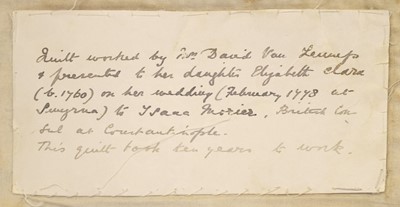 Quilt worked by Mrs David Van Lennep
& presented to her daughter Elizabeth Clara
(b. 1760) on her wedding (February 1778 at
Smyrna) to Isaac Morier, British Con
sul at Constantinople.
This quilt took ten years to work.